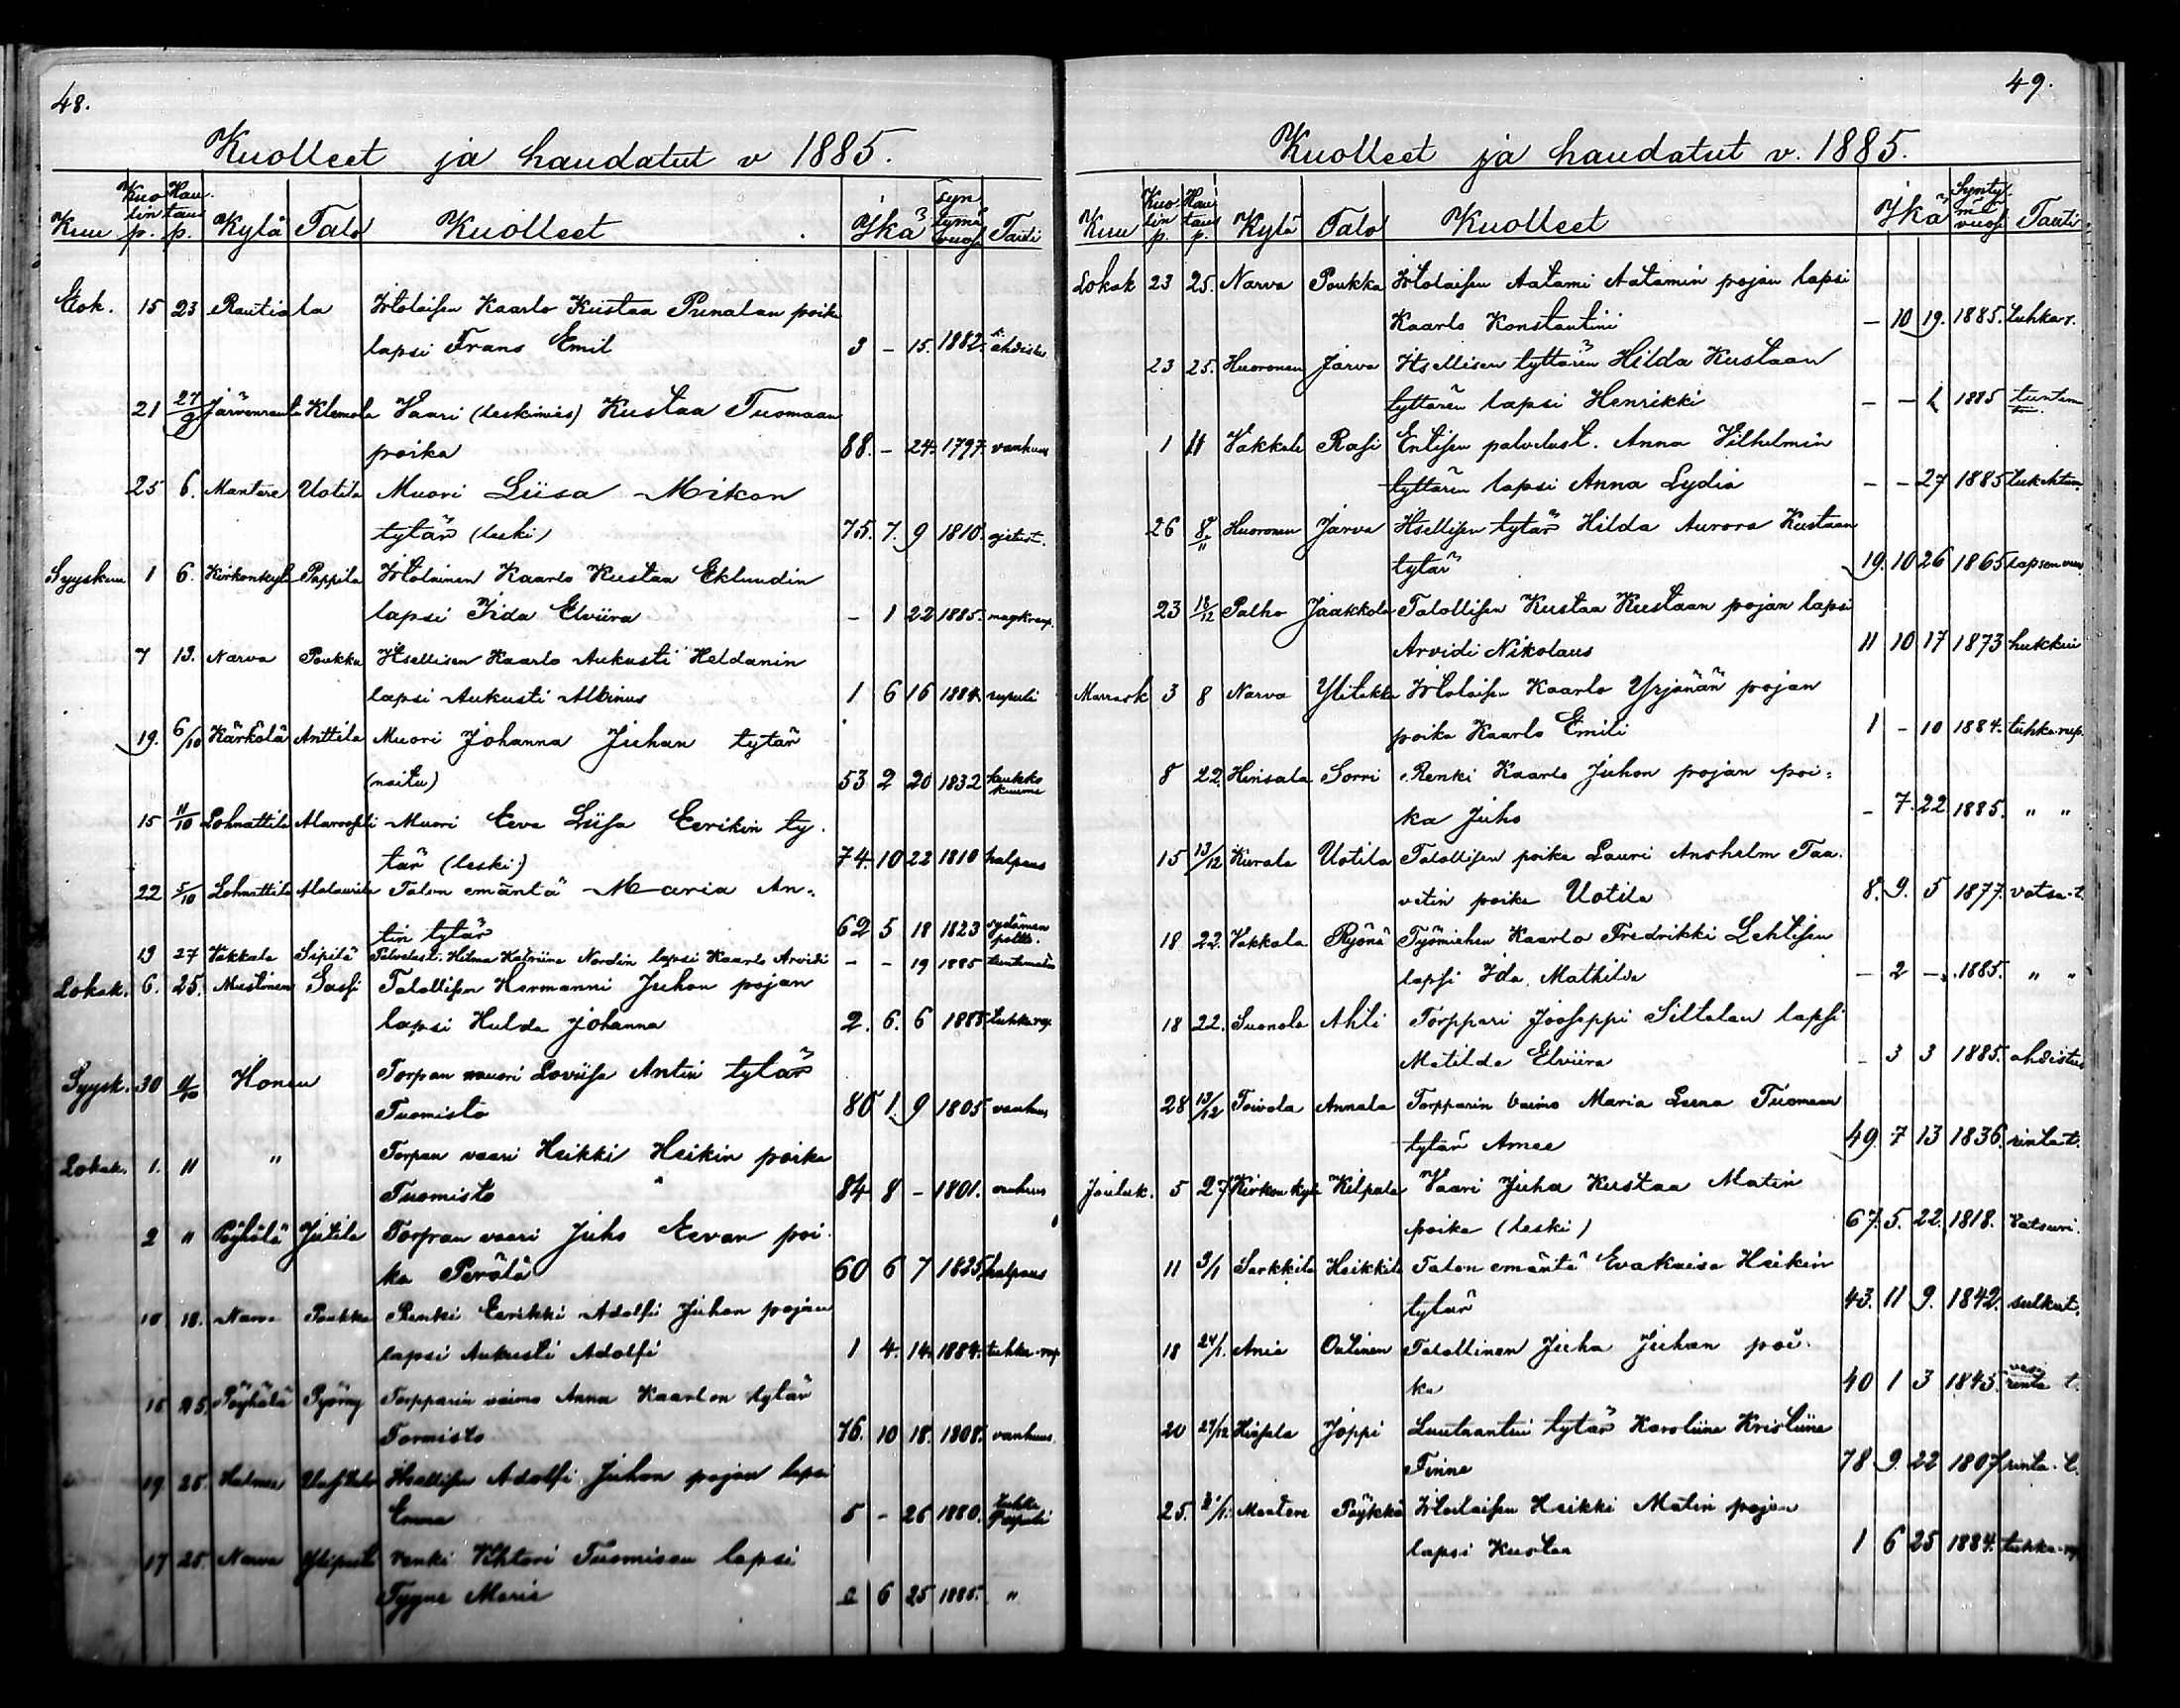 48.
Kuolleet ja haudatut v 1885.
Kuu Kuolin p. Hautaus p. Kylä Talo Kuolleet Ikä syntymä vuosi Tauti
Elok. 15 23 Rautiala Itolaisen Kaarlo Kustaa Punalan poika
lapsi Frans Emil 3 - 15. 1882. ahdistus
21 27/9 Järvenranta Klemola Vaari (leskimies) Kustaa Tuomaan
poika 88. - 24. 1797. vanhuus
25 6. Mantere Uotila Muori Liisa Mikon
tytär (leski) 75. 7. 9 1810.
Syyskuu 1 6. Kirkonkylä Pappila Itolainen Kaarlo Kustaa Eklundin
lapsi Iida Elviira - 1 22 1885.
7 13. Narva Poukka Itsellisen Kaarlo Aukusti Heldanin
lapsi Aukusti Albinus 1 6 16 1884. rupuli
19. 6/10 Kärkölä Anttila Muori Johanna Juhan tytär
(naitu) 53 2 20 1832 kuume
15 11/10 Lohnattila Alaroopeli Muori Eeva Liisa Eerikin ty-
tär (leski) 74. 10 22 1810 halpaus
22 5/10 Lohnattila Talon emäntä Maria An-
tin tytär 62 5 18 1823 sydämen poltto.
13 27 Vakkala Sipilä Palvelust. Hilma Katriina Nordin lapsi Kaarlo Arvidi - - 19 1885 tuntematon
Lokak. 6. 25. Mustinen Sassi Talollisen Hermanni Juhan pojan
lapsi Hulda Johanna 2. 6. 6 1883 tuhkarup.
Syysk. 30 Honen Torpan muori Loviisa Antin tytär
Tuomisto 80 1. 9 1805 vanhuus
Lokak. 1. 11 " Torpan vaari Heikki Heikin poika
Tuomisto 84 8 - 1801. vanhuus
2 " Pöyhölä Jutila Torpan vaari Juho Eevan poi-
ka Perälä 60 6 7 1825 halpaus
10 18. Narva Poukka Renki Eerikki Adolfi Juhan pojan
lapsi Aukusti Adolfi 1 4. 14. 1884. tuhka-rup
25. Pöyhölä Pyörny Torpparin vaimo Anna Kaarlon tytär
Tormisto 76. 10 18. 1808. vanhuus.
19. 25. Itsellisen Adolfi Juhan pojan lapsi
Emma 5 - 26 1880. tuhka rupuli
17 25. Narva Renki Vihtori Tuomisen lapsi
Tyyne Maria 6 25 1885. "
49.
Kuolleet ja haudatut v. 1885.
Kuu Kuolin p. Hautaus p. Kylä Talo Kuolleet Ikä Syntymä vuosi Tauti
Lokak 23 25. Narva Poukka Itolaisen Aatami Aatamin pojan lapsi
Kaarlo Konstantiini - 10 19. 1885. tuhkar.
23 25. Huoronen Järva Itsellisen tyttären Hilda Kustaan
tyttären lapsi Henrikki - - 1885
1 11 Vakkala Rasi Entisen palvelust. Anna Vilhelmin
tyttären lapsi Anna Lydia - - 27 1885
26 8/11 Huoronen Järva Itsellisen tytär Hilda Aurora Kustaan
tytär 19. 10 26 1865 lapsen vuo.
23 18/12 Palho Jaakkola Talollisen Kustaa Kustaan pojan lapsi
Arvidi Nikolaus 11 10 17 1873 hukkui
Marrask 3 8 Narva Itolaisen Kaarlo Yrjänän pojan
poika Kaarlo Emili 1 - 10 1884. tuhka-rup.
8 22. Hinsala Sorri Renki Kaarlo Juhon pojan poi-
ka Juho - 7. 22 1885. " "
15 13/12 Kurala Uotila Talollisen poika Lauri Anshelm Taa-
vetin poika Uotila 8. 9. 5 1877. vatsa-t.
18 22. Vakkala Ryönä Työmiehen Kaarlo Fredrikki Lehtisen
lapsi Ida Mathilda - 2 - 1885. " "
18 22. Suonola Ahti Torppari Joosseppi Siltalan lapsi
Matilda Elviira - 3 3 1885. ahdistus
28 13/12 Toivola Annala Torpparin vaimo Maria Leena Tuomaan
tytär Amee 49. 7 13 1836 rinta-t.
Jouluk. 5 27 Kirkonkylä Kilpala Vaari Juha Kustaa Matin
poika (leski) 67. 5. 22. 1818.
11 3/1 Sarkkila Heikkilä Talon emäntä Evakaisa Heikin
tytär 43. 11 9. 1842.
18 24/1. Ania Outinen Talollinen Juha Juhan poi-
ka 40 1 3 1845. vesi rinta t.
20 27/12 Hinsala Joppi Luutnantin tytär Karoliina Kristiina
Finne 78 9. 22 1807 rinta-t.
25. Mantere Pöykkä Itolaisen Heikki Matin pojan
lapsi Kustaa 1 6 25 1884. tuhka-rup